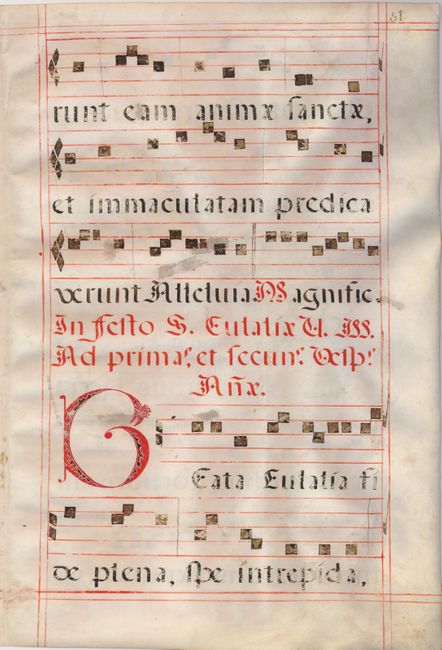 51
runt eam animæ sanctæ,
et immaculatam predica
verunt Alleluia Magnific.
In festo S. Eulaliæ V. M.
Ad primas, et secuns. Vesps.
Añæ.
BEata Eulalia fi
de plena, spe intrepida,